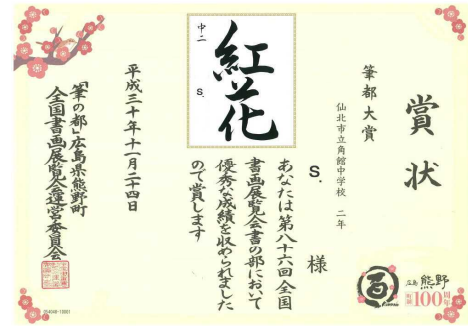 賞状
筆都大賞
仙北市立角館中学校 二年
S. 様
あなたは第八十六回全国
書画展覧会書の部において
優秀な成績を収められました
ので賞します
紅花
中二
S.
平成三十年十一月二十四日
「筆の都」広島県熊野町
全国書画展覧会運営委員会
広島 熊野
100周年